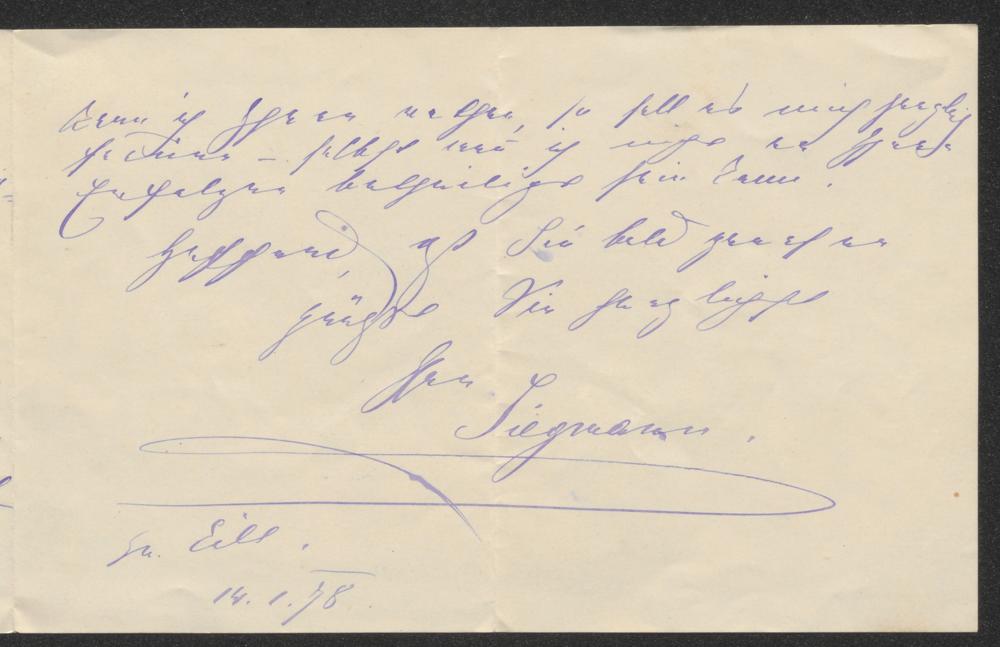 kann ich Ihnen rathen, so soll es mich herzlich
freuen – selbst wenn ich nicht an Ihren
Erfolgen betheiligt sein kann.
Hoffend, daß Sie bald genesen
grüßt Sie herzlichst
Ihr
Siegmann.
In Eile.
14.1.78